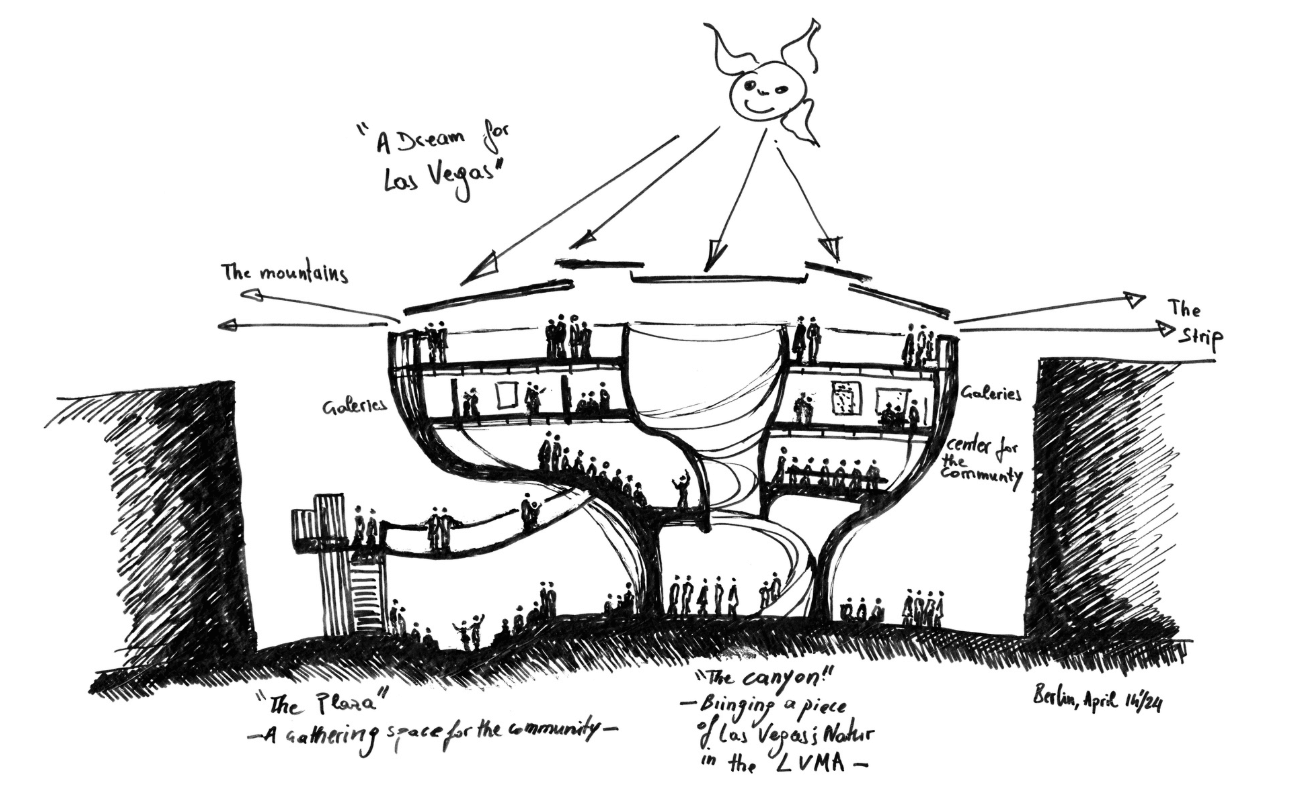 "A Dream for
Las Vegas"
The mountains
The
Strip
Galeries
Galeries
center for
the
Communty
"The Plaza"
—A Gathering space for the community—
"The canyon"
—Bringing a piece
of Las Vegas's Natur
in the LVMA—
Berlin, April 14'/24